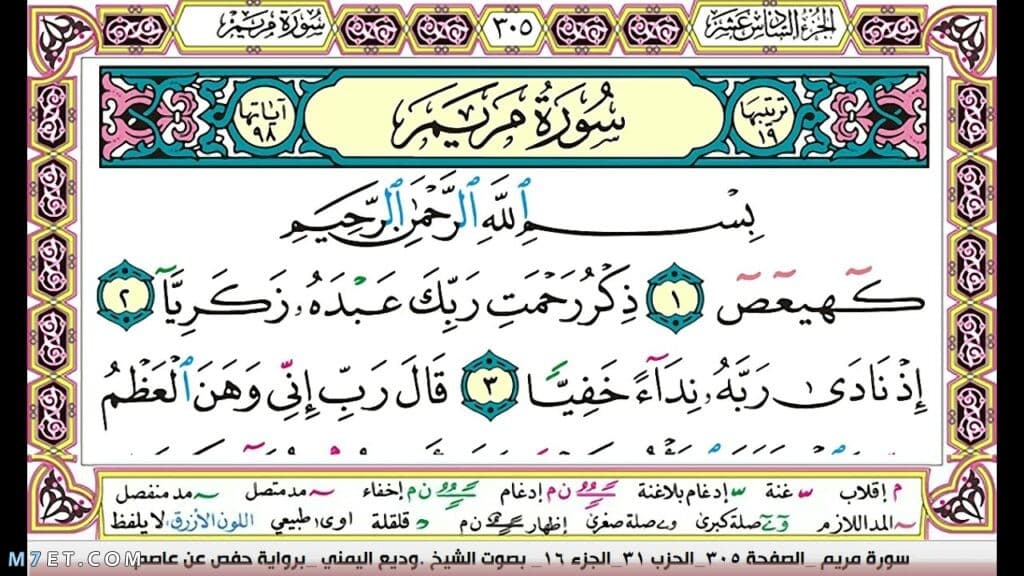 الجزء السادس عشر ٣٠٥ سورة مريم
ترتيبها ١٩ سُورَةُ مَرْيَمَ آياتها ٩٨
بِسْمِ ٱللَّهِ ٱلرَّحْمَٰنِ ٱلرَّحِيمِ
كٓهيعٓصٓ ١ ذِكْرُ رَحْمَتِ رَبِّكَ عَبْدَهُۥ زَكَرِيَّآ ٢
إِذْ نَادَىٰ رَبَّهُۥ نِدَآءً خَفِيًّا ٣ قَالَ رَبِّ إِنِّى وَهَنَ ٱلْعَظْمُ
م إقلاب غنة إدغام بلاغنة ن م إدغام ن م إخفاء مد متصل مد منفصل
المد اللازم صلة كبرى صلة صغرى إظهار ن م د قلقلة اوى طبيعي اللون الأزرق، لا يلفظ
سورة مريم _الصفحة ٣٠٥_ الحزب ٣١_الجزء ١٦_ بصوت الشيخ .وديع اليمني _برواية حفص عن عاصم
M7ET.COM